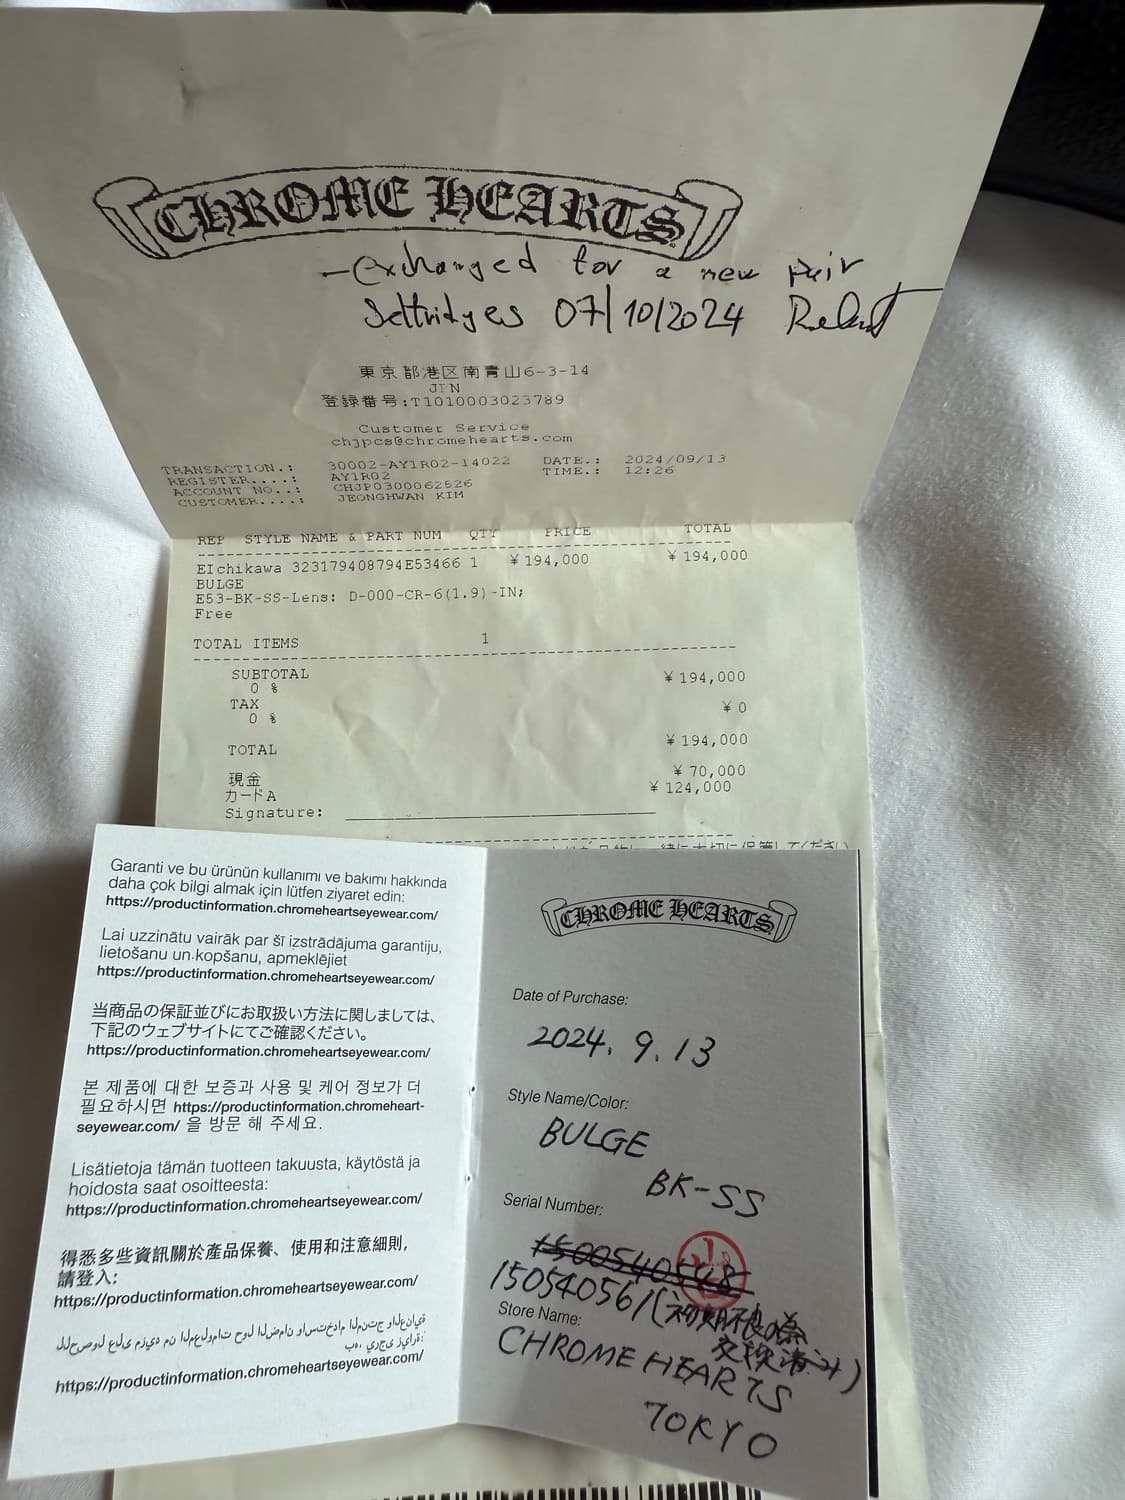 CHROME HEARTS
-exchanged for a new pair
Selfridges 07/10/2024
東京都港区南青山6-3-14
JPN
登録番号:T1010003023789
Customer Service
chjpcs@chromehearts.com
TRANSACTION.: 30002-AY1R02-14022 DATE.: 2024/09/13
REGISTER....: AY1R02 TIME.: 12:26
ACCOUNT NO..: CHJP0300062526
CUSTOMER....: JEONGHWAN KIM
REP STYLE NAME & PART NUM QTY PRICE TOTAL
EIchikawa 323179408794E53466 1 ¥194,000 ¥194,000
BULGE
E53-BK-SS-Lens: D-000-CR-6(1.9)-IN;
Free
TOTAL ITEMS 1
SUBTOTAL ¥194,000
0 %
TAX ¥0
0 %
TOTAL ¥194,000
現金 ¥70,000
カードA ¥124,000
Signature:
一緒に大切に保管してください
Garanti ve bu ürünün kullanımı ve bakımı hakkında
daha çok bilgi almak için lütfen ziyaret edin:
https://productinformation.chromeheartseyewear.com/
Lai uzzinātu vairāk par šī izstrādājuma garantiju,
lietošanu un kopšanu, apmeklējiet
https://productinformation.chromeheartseyewear.com/
当商品の保証並びにお取扱い方法に関しましては、
下記のウェブサイトにてご確認ください。
https://productinformation.chromeheartseyewear.com/
본 제품에 대한 보증과 사용 및 케어 정보가 더
필요하시면 https://productinformation.chromeheart-
seyewear.com/ 을 방문 해 주세요.
Lisätietoja tämän tuotteen takuusta, käytöstä ja
hoidosta saat osoitteesta:
https://productinformation.chromeheartseyewear.com/
得悉多些資訊關於產品保養、使用和注意細則,
請登入:
https://productinformation.chromeheartseyewear.com/
للحصول على مزيد من المعلومات حول الضمان واستخدام المنتج والعناية
به، يرجى زيارة:
https://productinformation.chromeheartseyewear.com/
CHROME HEARTS
Date of Purchase:
2024. 9. 13
Style Name/Color:
BULGE
BK-SS
Serial Number:
1500540548
150540561(初期不良の為
交換済み)
Store Name:
CHROME HEARTS
TOKYO